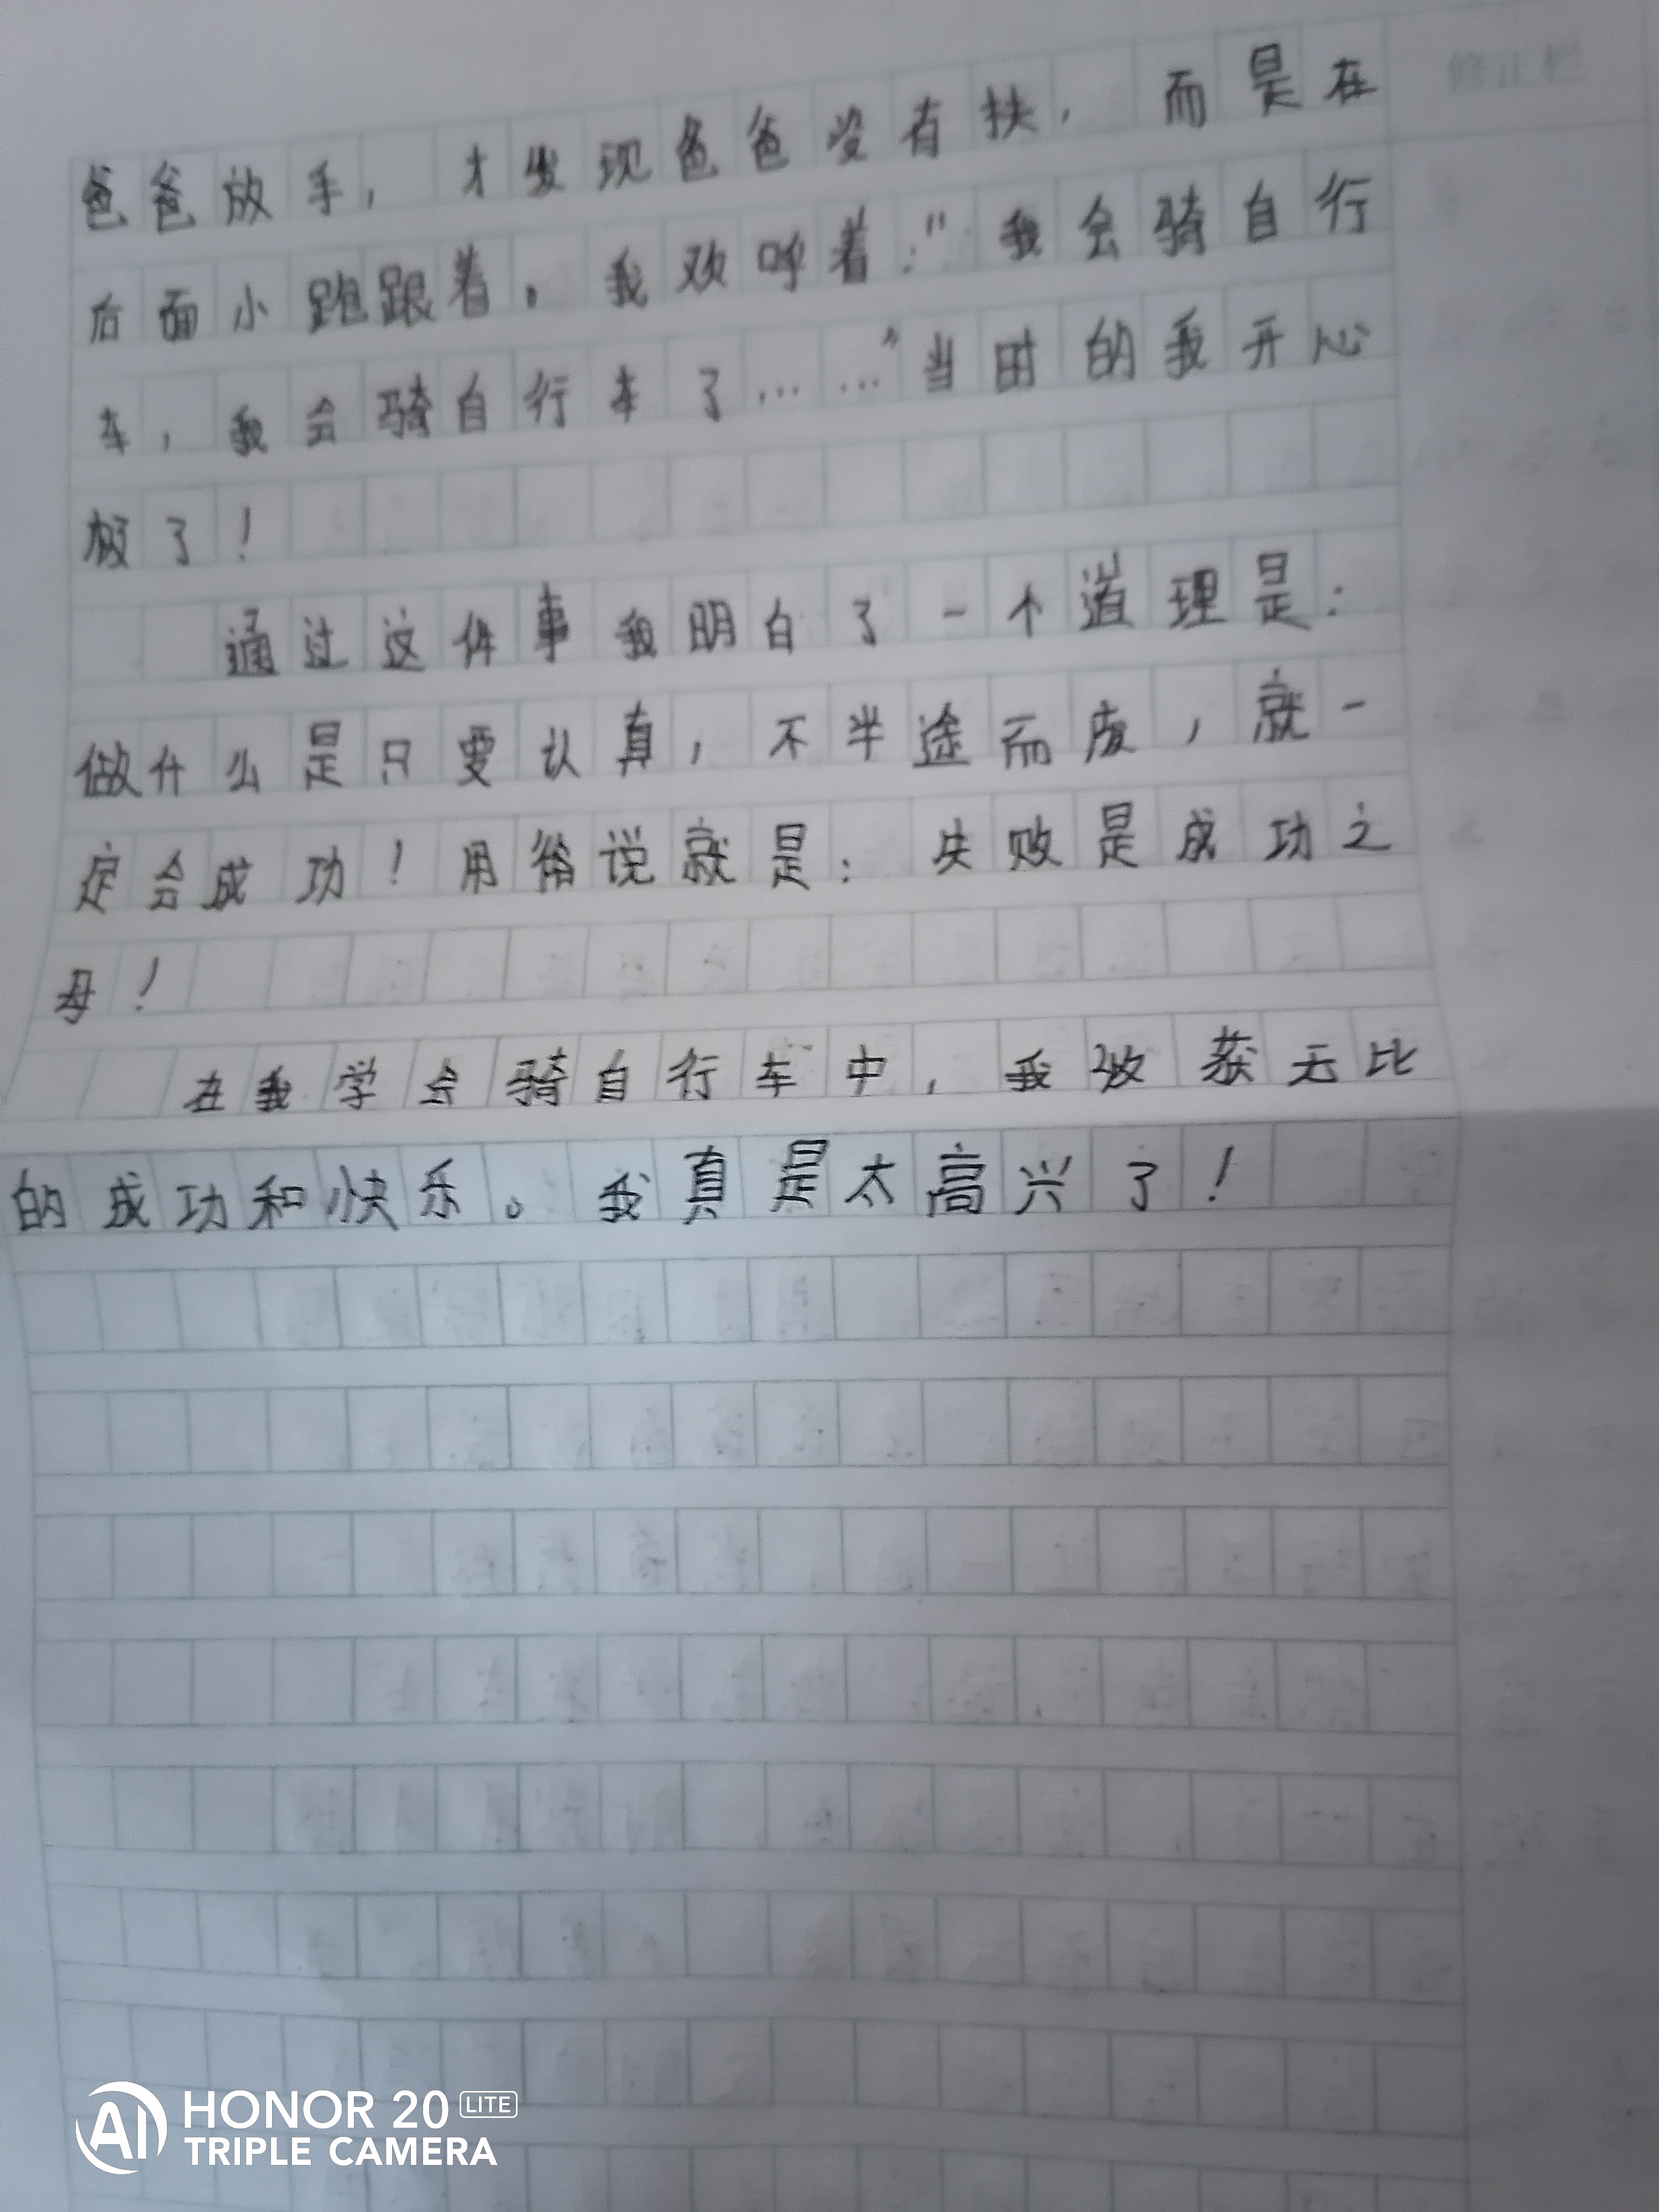 修正栏
爸爸放手，才发现爸爸没有扶，而是在
后面小跑跟着。我欢呼着："我会骑自行
车，我会骑自行车了……"当时的我开心
极了！
通过这件事我明白了一个道理是：
做什么是只要认真，不半途而废，就一
定会成功！用俗说就是：失败是成功之
母！
在我学会骑自行车中，我收获无比
的成功和快乐。我真是太高兴了！
AI HONOR 20 LITE
TRIPLE CAMERA